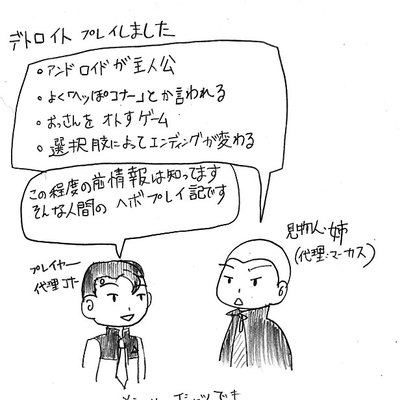 デトロイト プレイしました
。アンドロイドが主人公
。よく「へっぽこコナー」とか言われる
。おっさんを オトすゲーム
。選択肢によってエンディングが変わる
この程度の前情報は知ってます
そんな人間の ヘボプレイ記です
プレイヤー
代理コナー
見物人・姉
(代理:マーカス)